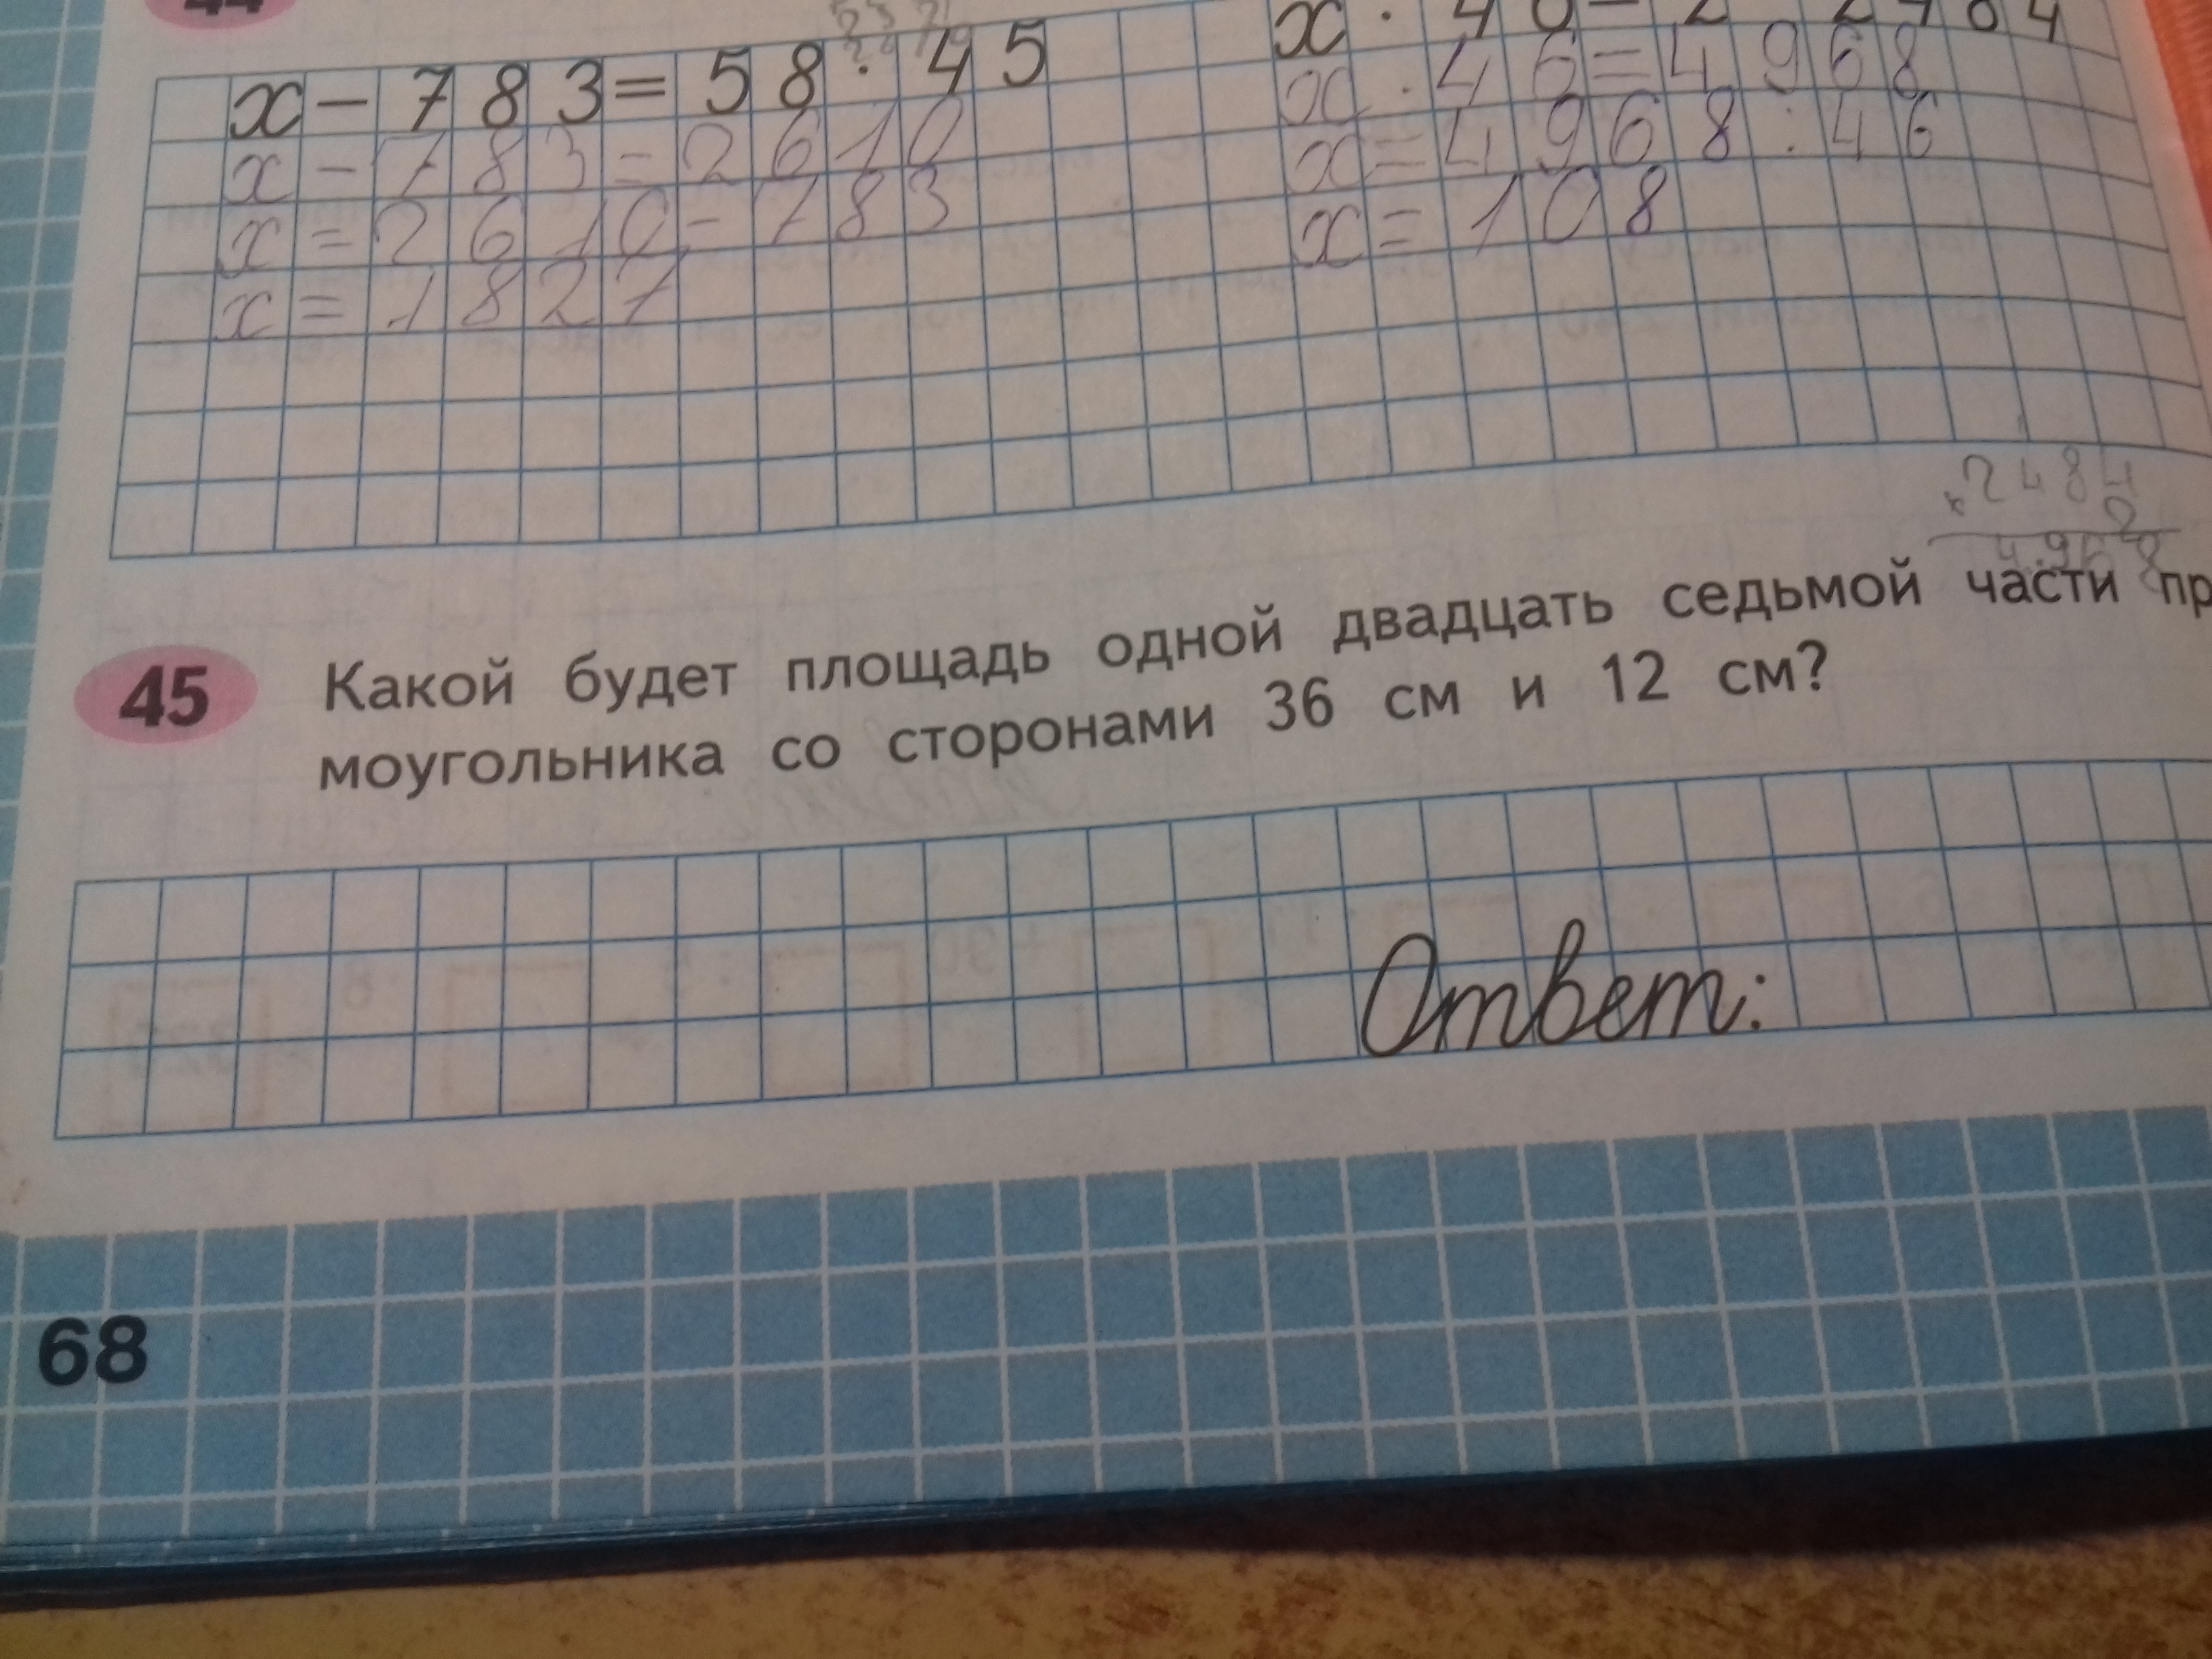 44
x - 783 = 58 · 45
x - 783 = 2610
x = 2610 - 783
x = 1827
x · 46 = 2 · 2484
x · 46 = 4968
x = 4968 : 46
x = 108
× 2484
2
4968
45 Какой будет площадь одной двадцать седьмой части пр
моугольника со сторонами 36 см и 12 см?
Ответ:
68